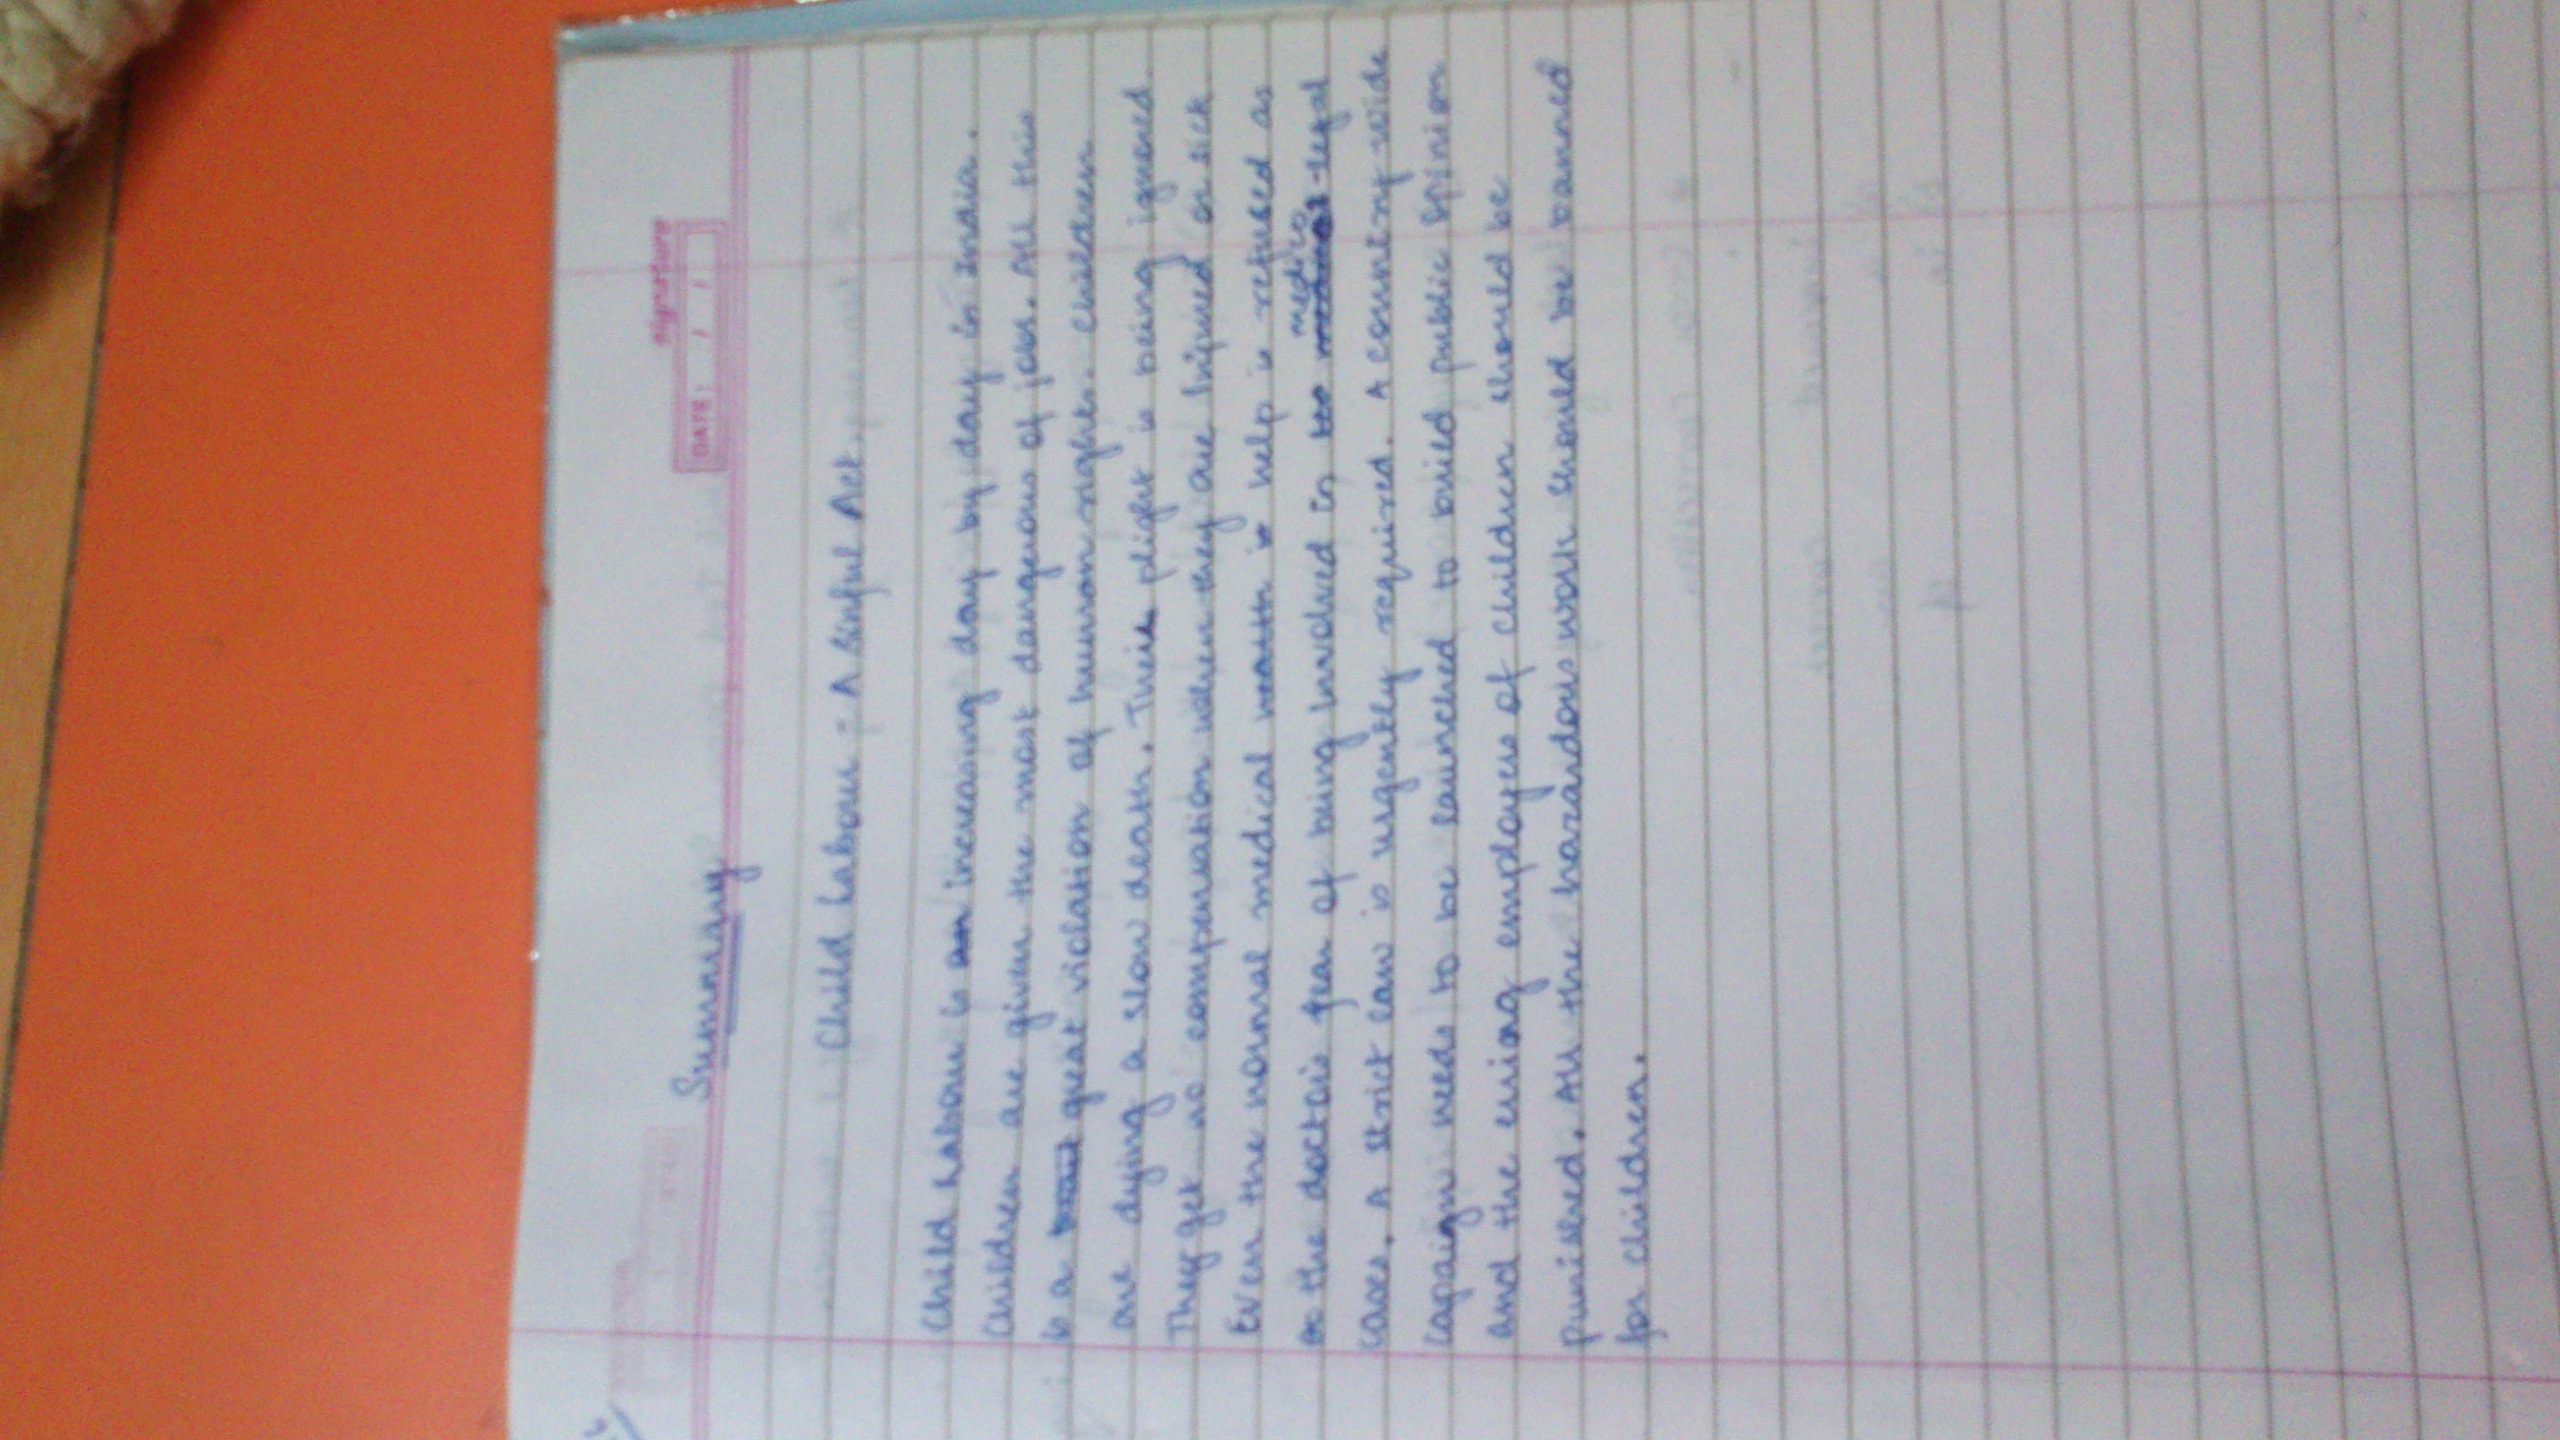 signature
DATE: / /
Summary
Child Labour - A Sinful Act.
Child Labour is increasing day by day in India.
Children are given the most dangerous of jobs. All this
is a great violation of human rights. Children
are dying a slow death. Their plight is being ignored.
They get no compensation when they are injured or sick
Even the normal medical help is refused as
the doctors fear of being involved in medico legal
cases. A strict law is urgently required. A country wide
capaign needs to be launched to build public opinion
and the erring employers of children should be
punished. All the hazardous work should be banned
for children.